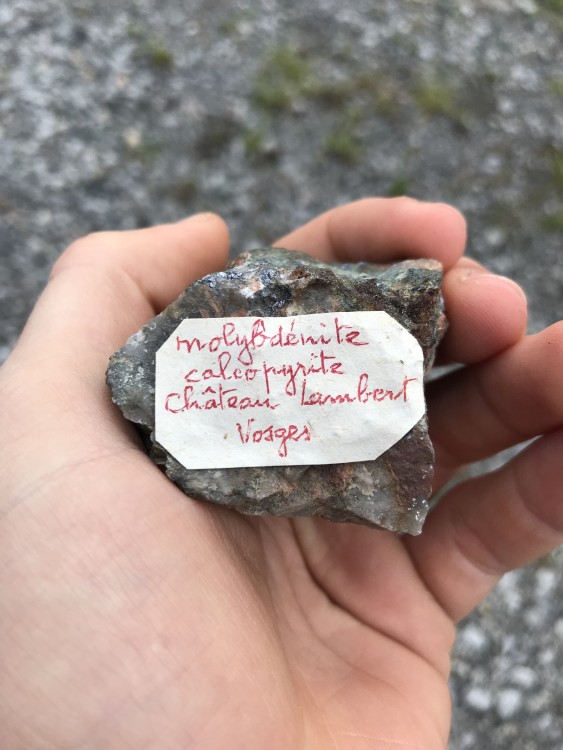 molybdénite
calcopyrite
Château Lambert
Vosges